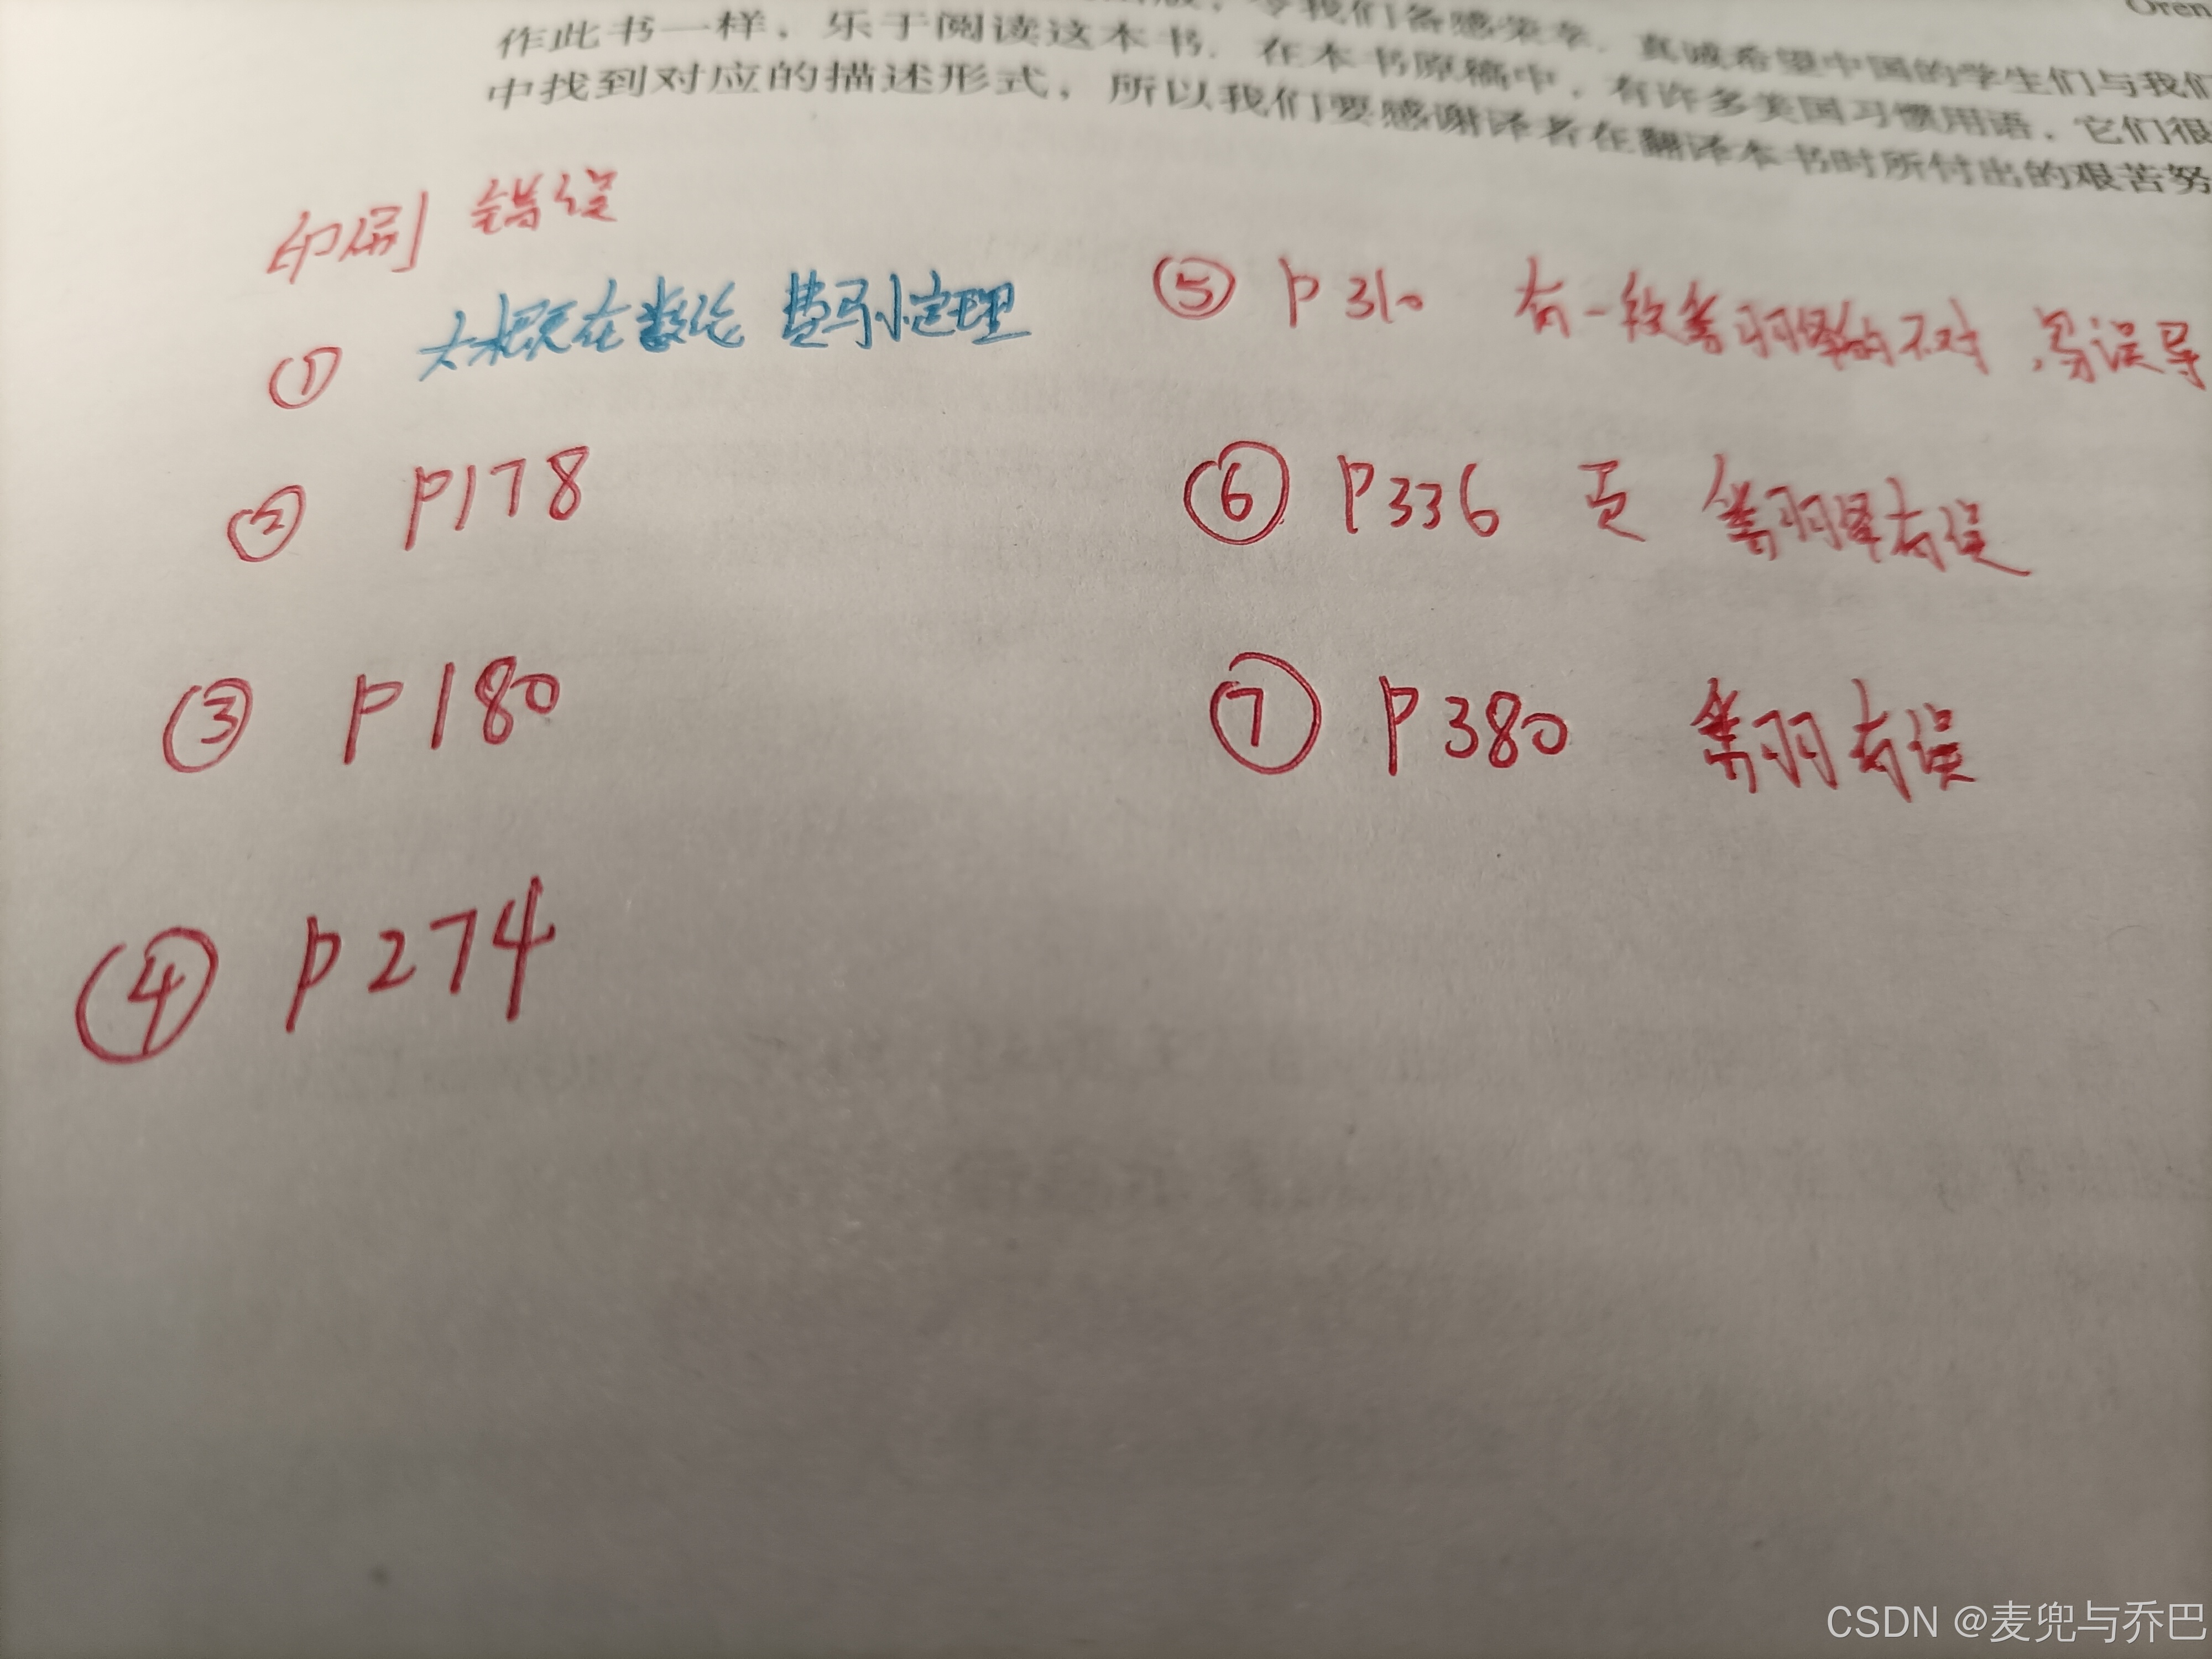 Oren
令我们备感荣幸. 真诚希望中国的学生们与我们
作此书一样, 乐于阅读这本书. 在本书原稿中, 有许多美国习惯用语, 它们很
中找到对应的描述形式, 所以我们要感谢译者在翻译本书时所付出的艰苦努
印刷 错误
① 大概在数论 费马小定理
② P178
③ P180
④ P274
⑤ P310 有一段 的不对, 易误导
⑥ P336 页 有误
⑦ P380 有误
CSDN @麦兜与乔巴